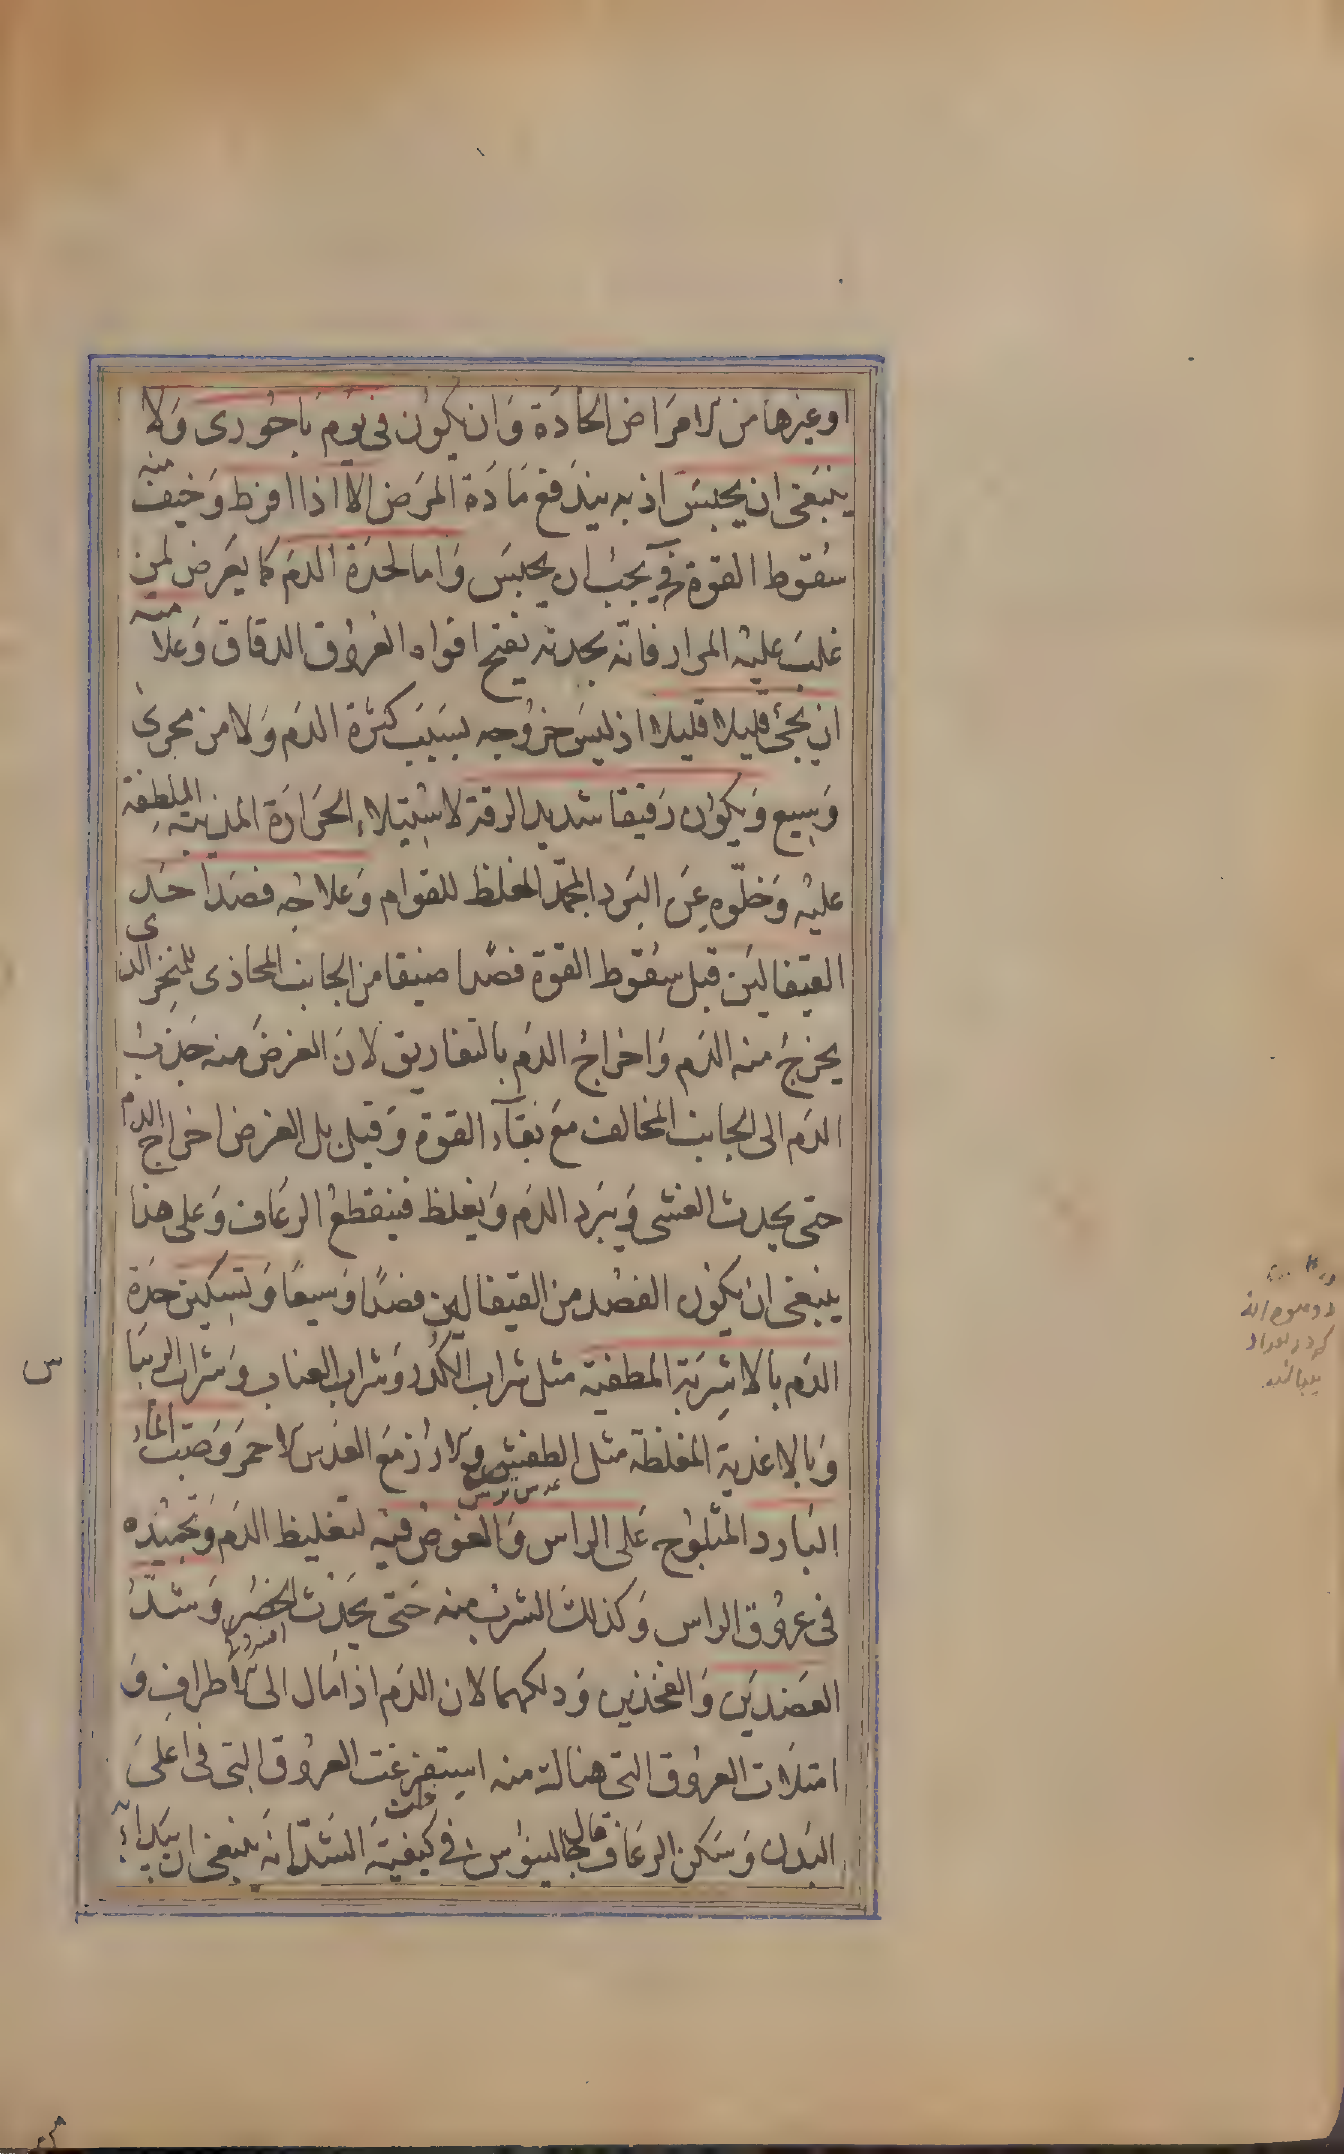 او غيرها من الامراض الحادة وان يكون فى يوم باحورى ولا
ينبغى ان يحبس اذ به يندفع مادة المرض الا اذا افرط وخيف منه
سقوط القوة فح يجب ان يحبس واما لحدة الدم كما يعرض لمن
غلب عليه المرار فانه بحدته يفتح افواه العروق الدقاق وعلامته
ان يجئ قليلا قليلا اذ ليس خروجه بسبب كثرة الدم ولا من مجرى
وسيع ويكون رقيقا شديد الرقة لاستيلاء الحرارة المذيبة الملطفة
عليه وخلوه عن البرد المجمد المغلظ للقوام وعلاجه فصد احدى
القيفالين قبل سقوط القوة فصدا ضيقا من الجانب المحاذى للمنخر الذى
يخرج منه الدم واخراج الدم بالتفاريق لان الغرض منه جذب
الدم الى الجانب المخالف مع بقاء القوة وقيل بل الغرض اخراج الدم
حتى يحدث الغشى ويبرد الدم ويغلظ فينقطع الرعاف وعلى هذا
ينبغى ان يكون الفصد من القيفالين فصدا وسيعا وتسكين حدة
الدم بالاشربة المطفية مثل شراب الكدر وشراب العناب وشراب الريباس
وبالاغذية المغلظة مثل الطفشيل والارز مع العدس الاحمر وصب الماء
البارد المثلوج على الراس والغوض فيه لتغليظ الدم وتجميده
فى عروق الراس وكذلك الشرب منه حتى يحدث الخضر وشد
العضدين والفخذين ودلكهما لان الدم اذا مال الى الاطراف و
امتلات العروق التى هناك منه استفرغت العروق التى فى اعلى
البدن وسكن الرعاف قال جالينوس فى كيفية الشد انه ينبغى ان يبداء